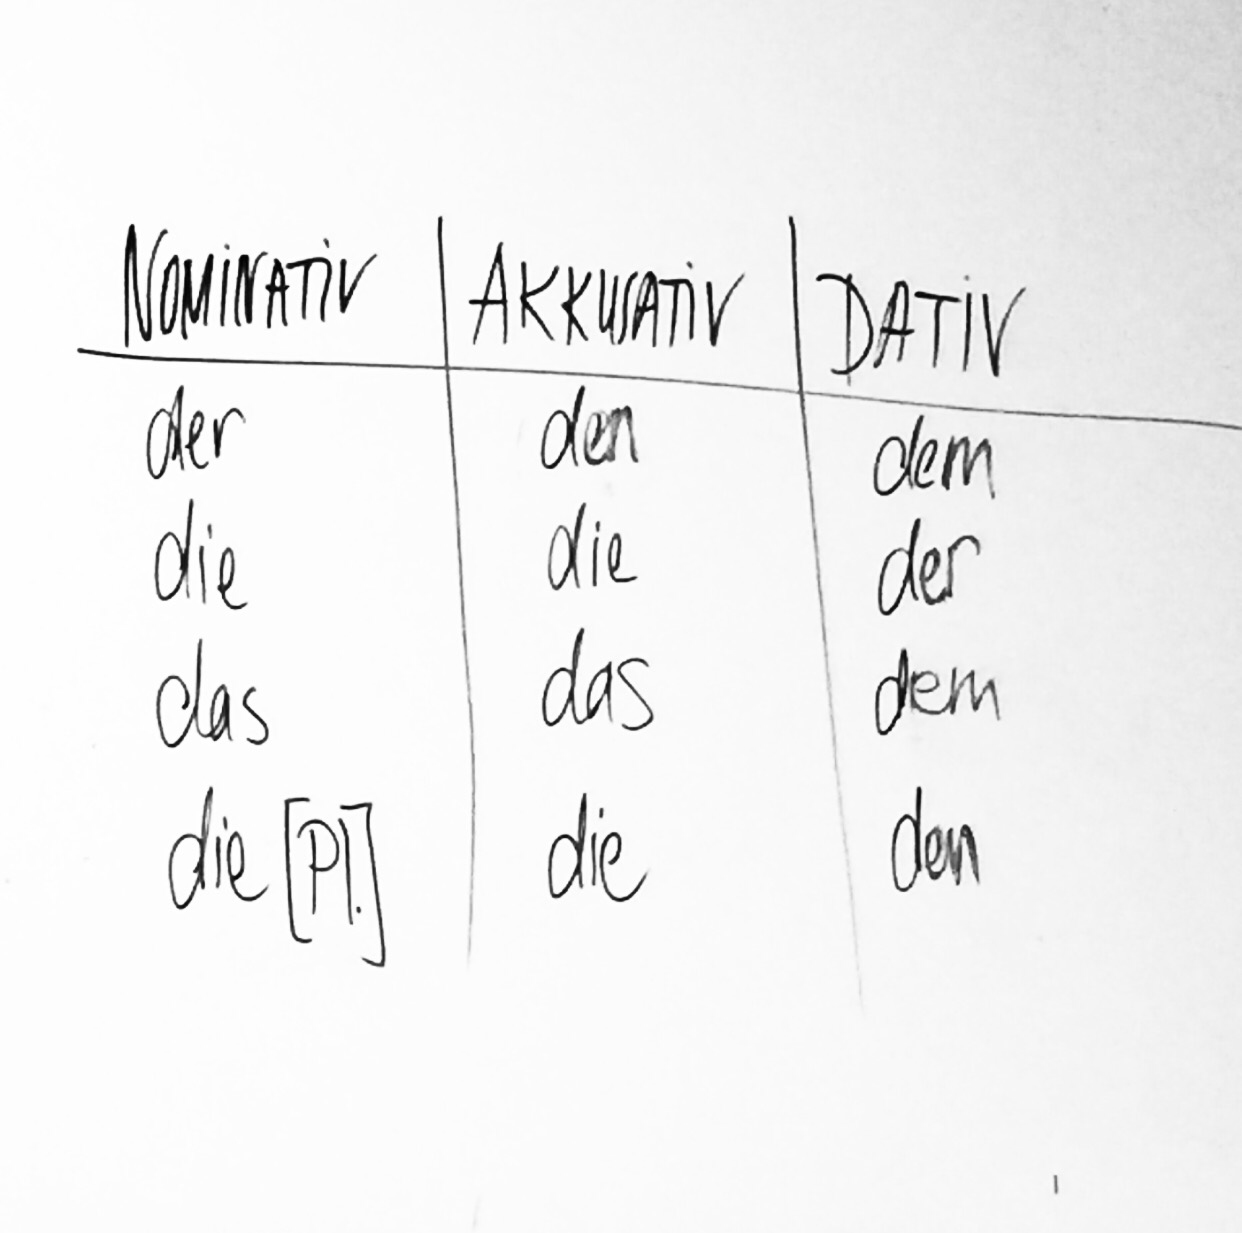 NOMINATIV AKKUSATIV DATIV
der den dem
die die der
das das dem
die [Pl.] die den